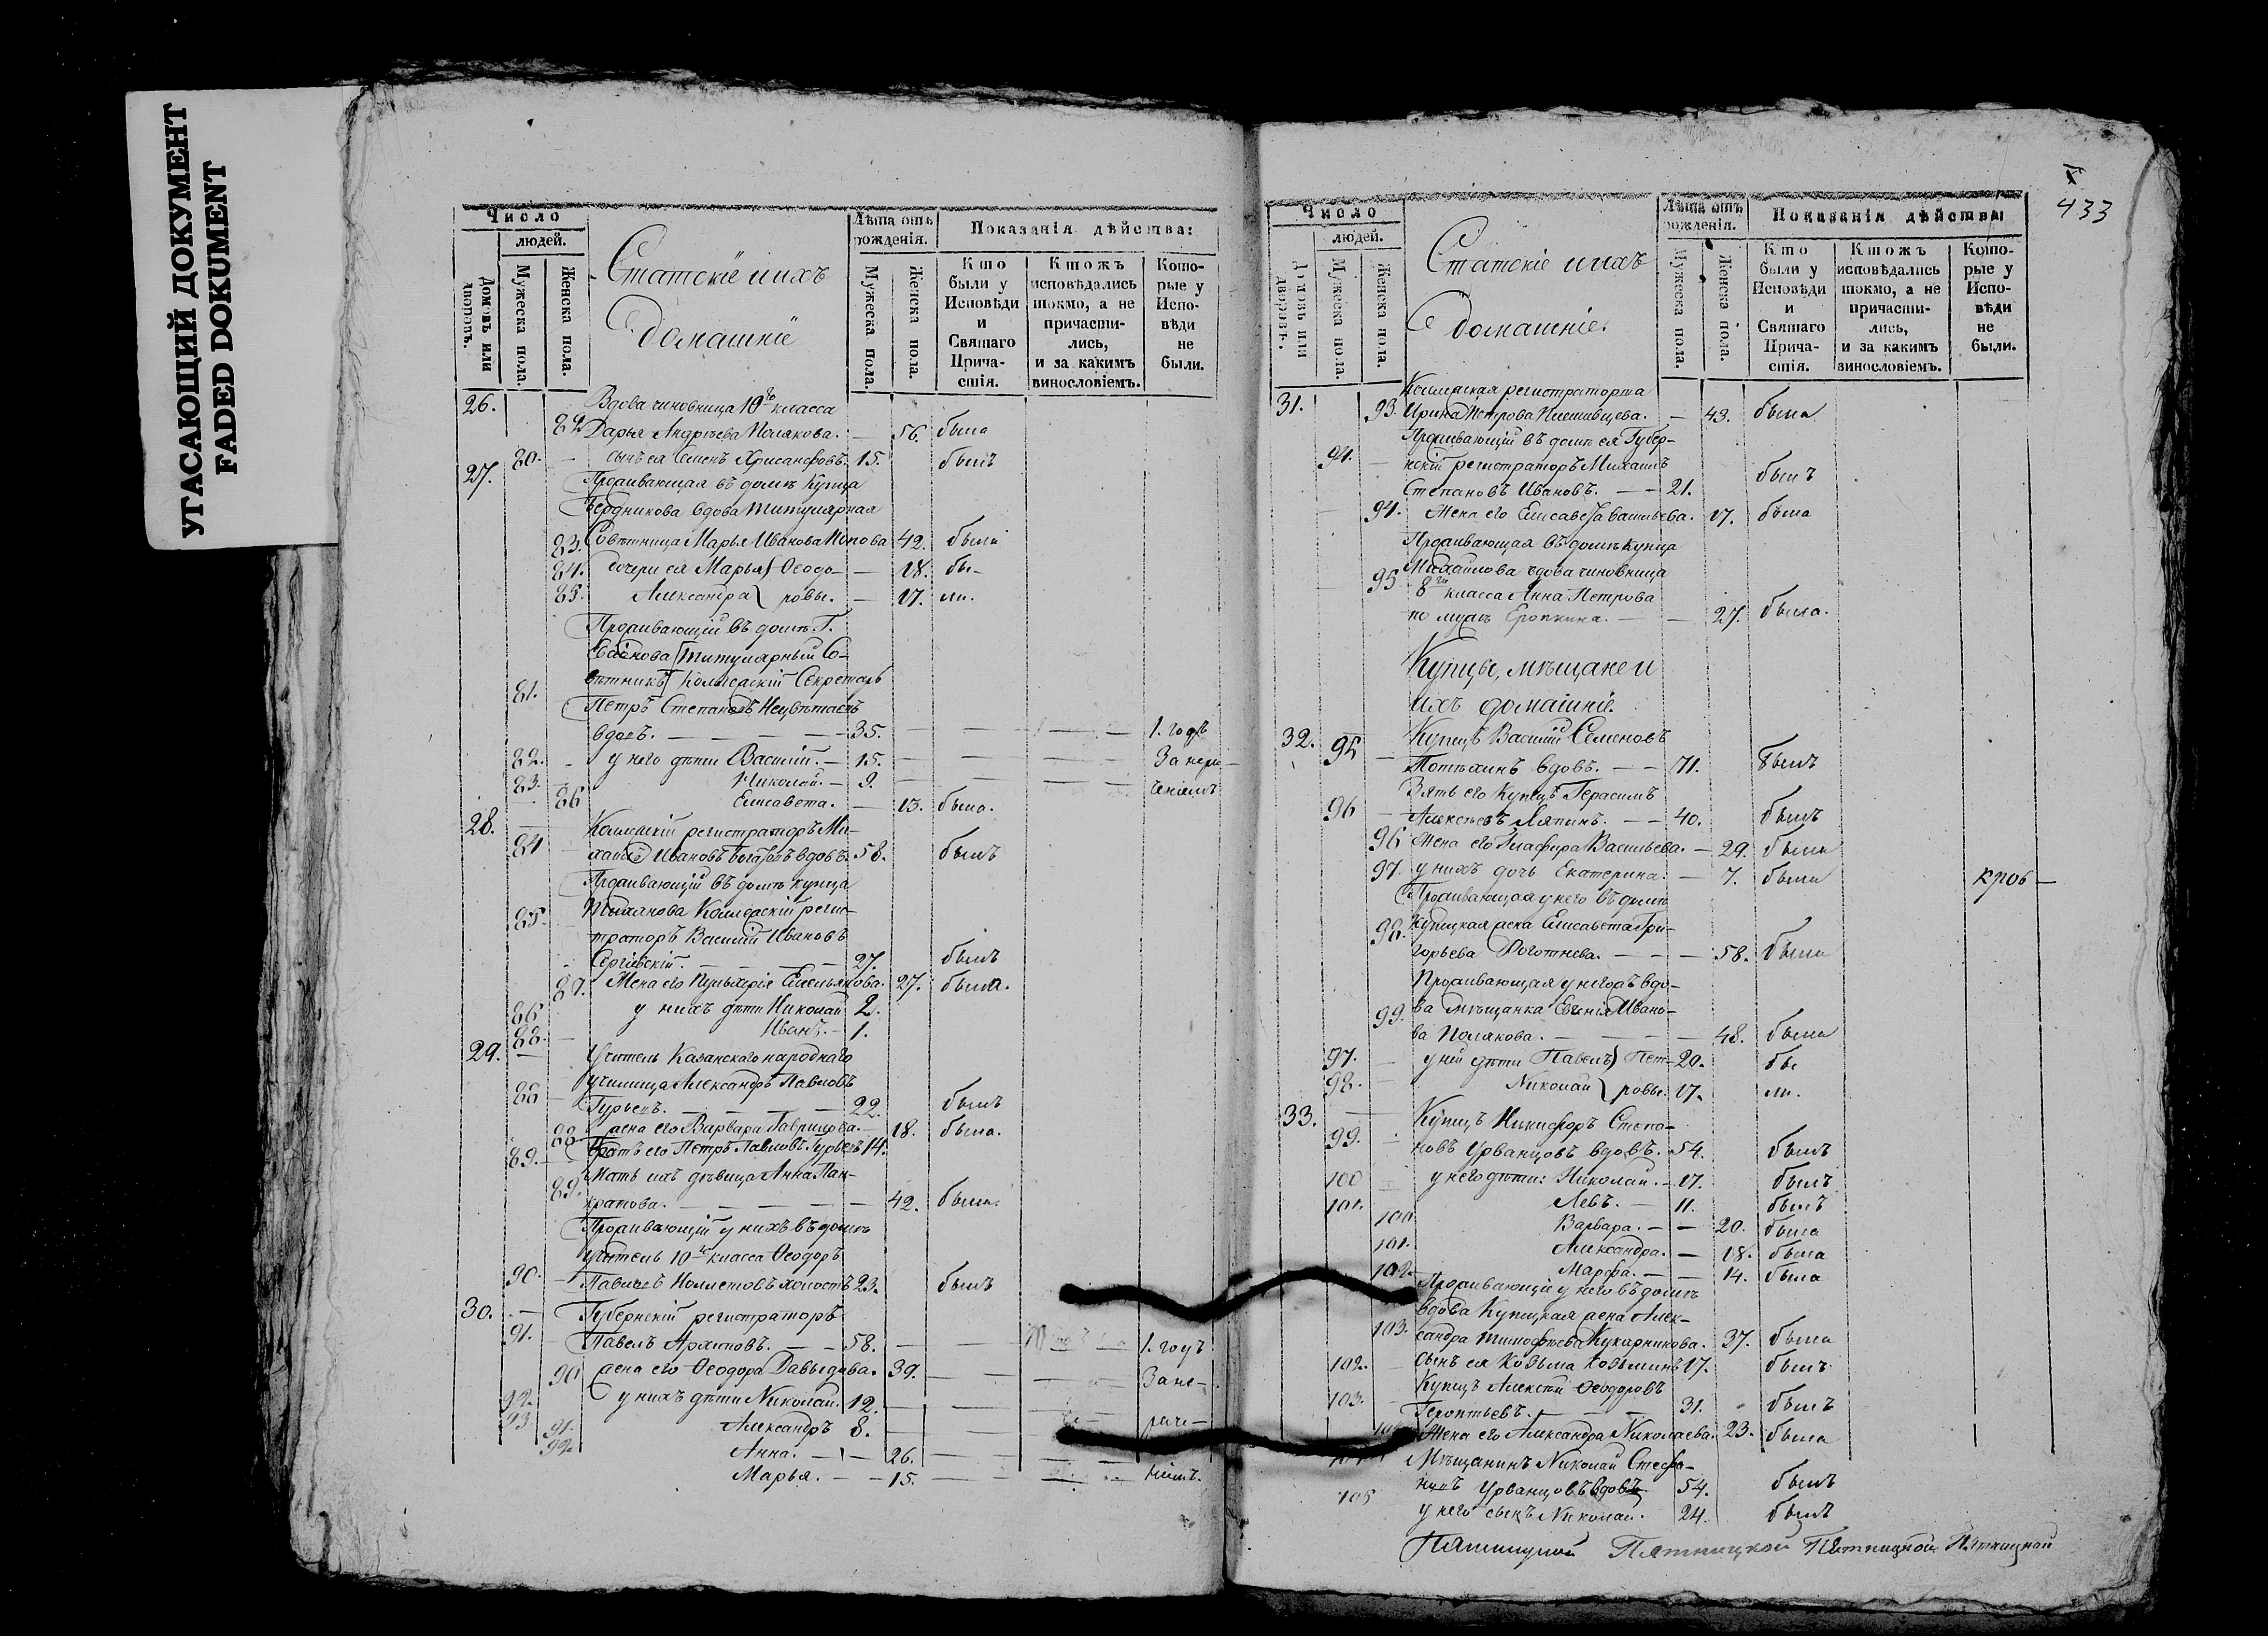 УГАСАЮЩИЙ ДОКУМЕНТ
FADED DOKUMENT
Число
людей.
Домовъ или дворовъ.
Мужеска пола.
Женска пола.
Статскіе и ихъ
домашніе
Лѣта отъ рожденія.
Мужеска пола.
Женска пола.
Показанія дѣйства:
Кто были у Исповѣди и Святаго Причастія.
Ктожъ исповѣдались токмо, а не причастились, и за какимъ винословіемъ.
Которые у Исповѣди не были.
26. Вдова чиновница 10го класса
82 Дарья Андрѣева Полякова. — 56. была
80. — сынъ ея Семенъ Хрисанфовъ. 15. былъ
27. Проживающая въ домѣ купца
Бердникова вдова Титулярная
83. Совѣтница Марья Иванова Попова 42. была
84. дочери ея Марья Ѳеодо- — 18. бы-
85. Александра ровы. — 17. ли.
Проживающій въ домѣ Г.
Титулярный Со-
81. вѣтникъ Коллежскій Секретарь
Петръ Степановъ
вдовъ. — 35. — 1. годъ
82. у него дѣти Василій. — 15. — За нера-
83. Николай. — 9. — ченіемъ
86 Елисавета. — 13. была.
28. Коллежскій регистраторъ Ми-
84 хайло Ивановъ вдовъ. 58. былъ
Проживающій въ домѣ купца
85. Коллежскій реги-
траторъ Василій Ивановъ
Сергіевскій. — 27. былъ
87. Жена его Пульхерія Емельянова. 27. была.
86 у нихъ дѣти Николай 2.
88. Иванъ. — 1.
29. — Учитель Казанскаго народнаго
училища Александръ Павловъ
88 — Гурьевъ. — 22. былъ
88 жена его Варвара Гаврилова. — 18. была.
89. — братъ его Петръ Павловъ Гурьевъ 14.
89. Мать ихъ дѣвица Анна Пан-
кратова. — 42. была.
Проживающій у нихъ въ домѣ
учитель 10го класса Ѳеодоръ
90. Павловъ холостъ 23. былъ
30. — Губернскій регистраторъ
91. Павелъ Архиповъ. — 58. — 1. годъ
90 жена его Ѳеодора Давыдова. 39. — За не-
92. у нихъ дѣти Николай. 12. —
93 91. Александръ 8. — раче-
92 Анна. — 26. —
Марья. — 15. — ніемъ.
433
Число
людей.
Домовъ или дворовъ.
Мужеска пола.
Женска пола.
Статскіе и ихъ
домашніе.
Лѣта отъ рожденія.
Мужеска пола.
Женска пола.
Показанія дѣйства:
Кто были у Исповѣди и Святаго Причастія.
Ктожъ исповѣдались токмо, а не причастились, и за какимъ винословіемъ.
Которые у Исповѣди не были.
31. Коллежская регистраторша
93. Ирина Петрова — 43. была
Проживающій въ домѣ ея Губер-
94. — нскій регистраторъ Михаилъ
Степановъ Ивановъ. — 21. былъ
94. Жена его Елисавета Васильева. 17. была
Проживающая въ домѣ купца
Михайлова вдова чиновница
95 8го класса Анна Петрова
по мужѣ Еропкина. — 27. была.
Купцы, мѣщане и
ихъ домашніе.
32. Купецъ Василій Семеновъ
95 — Потѣхинъ вдовъ. — 71. былъ
Зять его Купецъ Герасимъ
96 — Алексѣевъ Ляпинъ. — 40. былъ
96 Жена его Глафира Васильева. — 29. была
97. у нихъ дочь Екатерина. — 7. была
Проживающая у него въ домѣ
98. Купецкая жена Елисавета Гри-
горьева — 58. была
Проживающая у негожъ вдо-
99. ва мѣщанка Евгенія Ивано-
ва Полякова. — 48. была
97. — у ней дѣти Павелъ Пет- 20. бы
98. — Николай ровы. 17. ли.
33. — Купецъ Никифоръ Степа-
99. — новъ Урванцовъ вдовъ. 54. былъ
100 у него дѣти: Николай. — 17. былъ
101. Левъ. — 11. былъ
100 Варвара. — 20. была
101. Александра. — 18. была
102. Марѳа. — 14. была
Проживающіе у него въ домѣ
вдова Купецкая жена Алек-
103. сандра Тимофѣева Кухарникова. 37. была
102. — сынъ ея Козьма Козьминъ 17. былъ
Купецъ Алексѣй Ѳеодоровъ
103. — Терентьевъ. — 31. былъ
Жена его Александра Николаева. 23. была
Мѣщанинъ Николай Стефа-
новъ Урванцовъ вдовъ 54. былъ
105 у него сынъ Николай. 24. былъ
кров —
Пятницкой Пятницкой Пятницкой Пятницкой